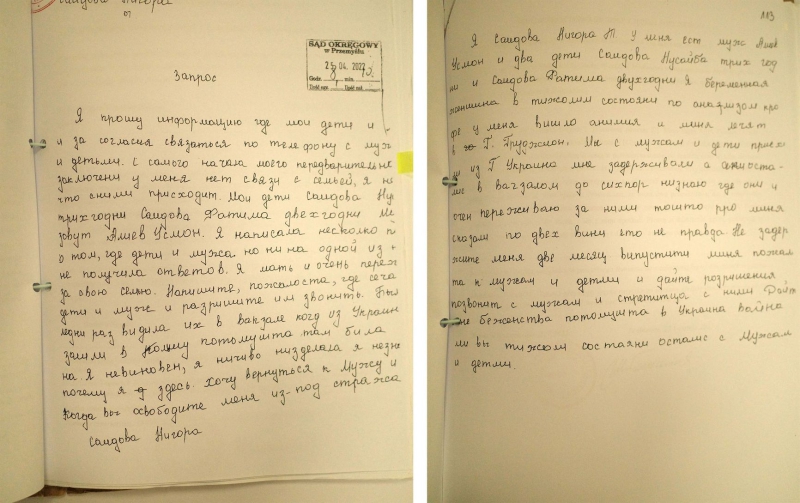 Саидова Нигора
от
SĄD OKRĘGOWY
w Przemyślu
04. 2022
Godz. min.
Ilość zał. Ilość str.
Запрос
Я прошу информацию где мои дети и
и за согласия связаться по телефону с муж
и детьми. С самого начала моего передварительне
заключени у меня нет связу с семьей, я не
что сними присходит. Мои дети Саидова Ну
трихгодни Саидова Фатима двехгодни м
зовут Алиев Усмон. Я написала несколько п
о том, где дети и мужа но ни на одной из
не получила ответов. Я мать и очень переж
за свою семю. Напишите, пожалоста, где сеча
дети и муж и разришите им звонить.
один раз видила их в вакзале когд из Украин
зашли в Полшу потомушта там била
на. Я невиновен, я ничиво низделала я незн
почему я здесь. Хочу вернуться к мужу и
Когда вы освободите меня из-под стража
Саидова Нигора
113
Я Саидова Нигора М У меня ест муж Алиев
Усмон и два дети Саидова Нусайба трих год
ни и Саидова Фатима двухгодни Я беременная
женшина в тижолим состояни по анализом про
фе у меня вишло анимия и меня лечят
в Г. Груджион. Мы с мужам и дети приех
ли из Г Украина мне задерживали а оста-
лис в вагзалом до сихпор низнаю где они и
очен переживаю за ними тошто про миня
сказали по двех вини ето не правда. Не задер
жите меня две месяц випустити миня пожал
та к мужам и детми и дайте розришения
позвонит с мужам и стретитца с ними Дайт
не беженства потомушта в Украина вайна
ми вы тижолм состаяни осталис с мужам
и детми.